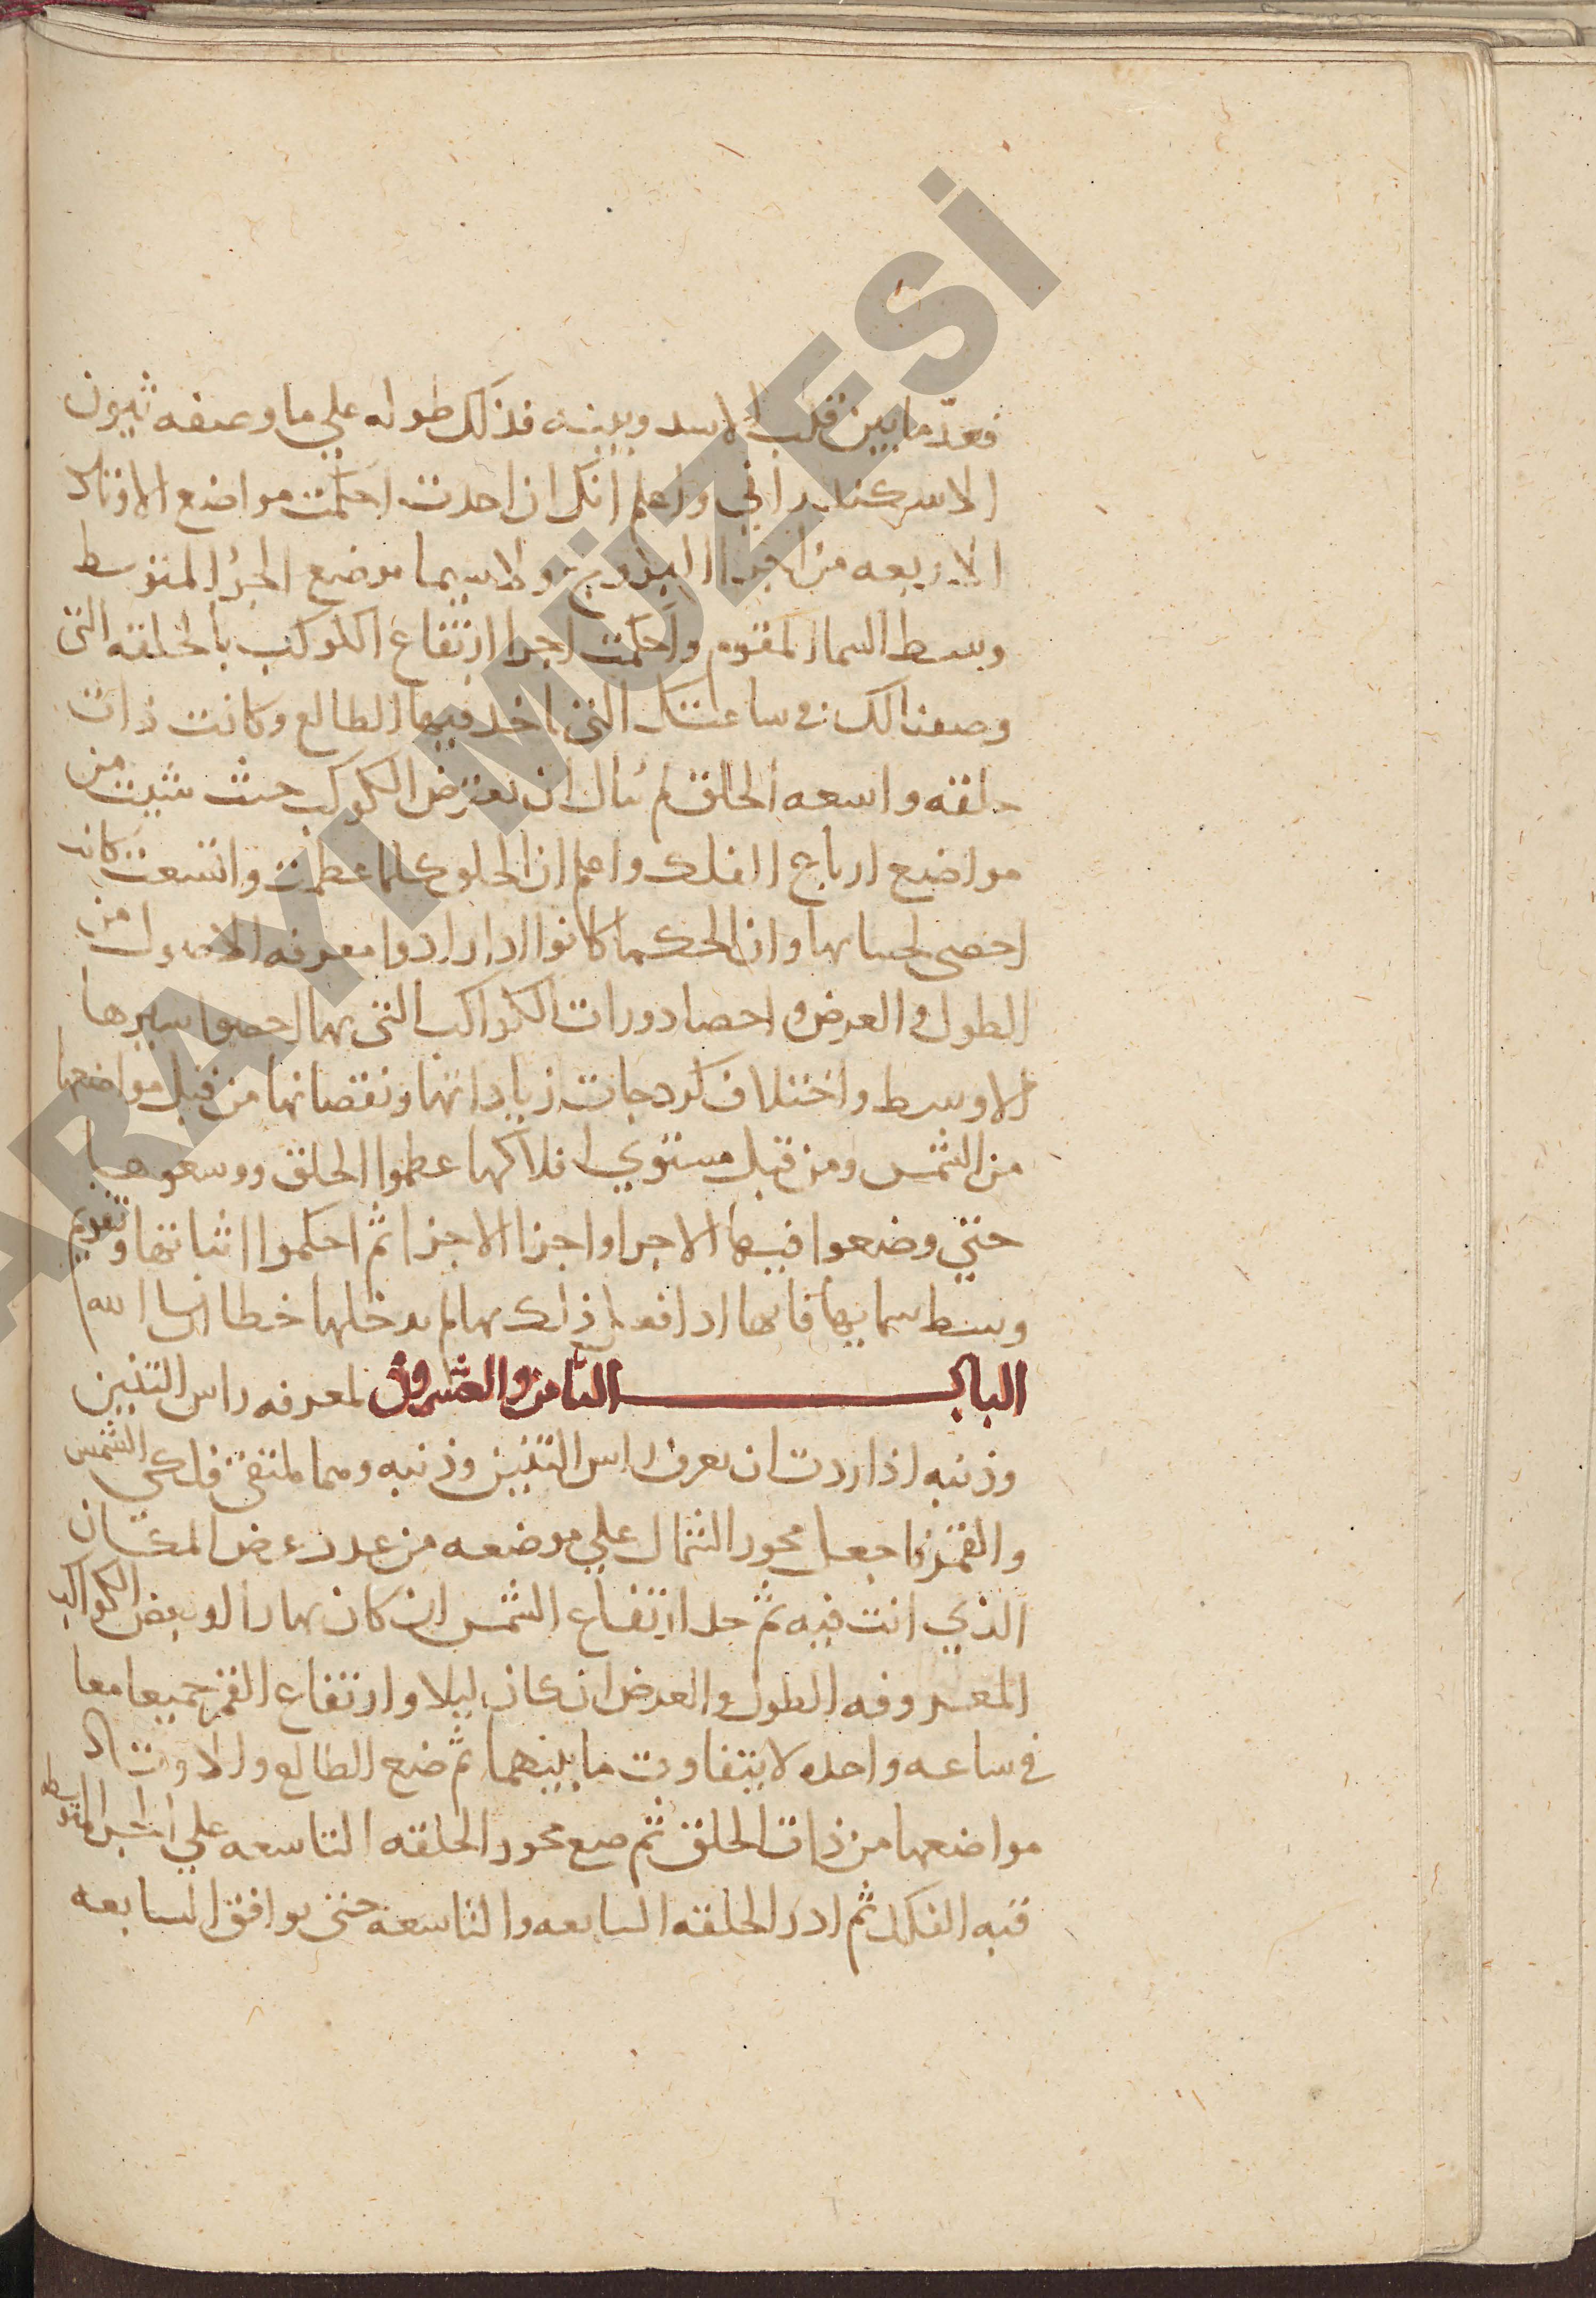 فعدّ ما بين قلب الاسد وبينه فذلك طوله علي ما وصفه ثيون
الاسكندراني واعلم انك ان احكمت مواضع الاوتاد
الاربعه من اجزا البروج ولاسيما موضع الجزا المتوسط
وسط السما المقوم واحكمت اجرا ارتفاع الكوكب بالحلقه التي
وصفنا لك في ساعتك التي اخد فيها الطالع وكانت ذات
حلقه واسعه الحلق لم تبال ان تعترض الكوكب حيث شيت من
مواضع ارباع الفلك واعلم ان الحلق كلما عظمت واتسعت كانت
احصي لحسابها وان الحكما كانوا ادا ارادوا معرفه الاصول من
الطول والعرض واحصا دورات الكواكب التي بها احصوا سيرها
الاوسط واختلاف كردجات زياداتها ونقصانها من قبل مواضعها
من الشمس ومن قبل مستوي افلاكها عظموا الحلق ووسعوها
حتي وضعوا فيها الاجرا واجزا الاجزا ثم احكموا اثباتها وتقويم
وسط سمايها فانها ادا فعل ذلك بها لم يدخلها خطا ان سا الله
الباب الثامن والعشرون لمعرفه راس التنين
وذنبه اذا اردت ان تعرف راس التنين وذنبه وهما ملتقي فلكي الشمس
والقمر فاجعل محور الشمال علي موضعه من عدد عرض المكان
الذي انت فيه ثم خد ارتفاع الشمس ان كان نهارا او بعض الكواكب
المعروفه الطول والعرض ان كان ليلا وارتفاع القمر جميعا معا
في ساعه واحده لا يتفاوت ما بينهما ثم ضع الطالع والاوتاد
مواضعها من ذات الحلق ثم ضع محور الحلقه التاسعه علي الجزا المتوسط
فيه الفلك ثم ادر الحلقه السابعه والتاسعه حتي يوافق السابعه
ARAYI MÜZESİ